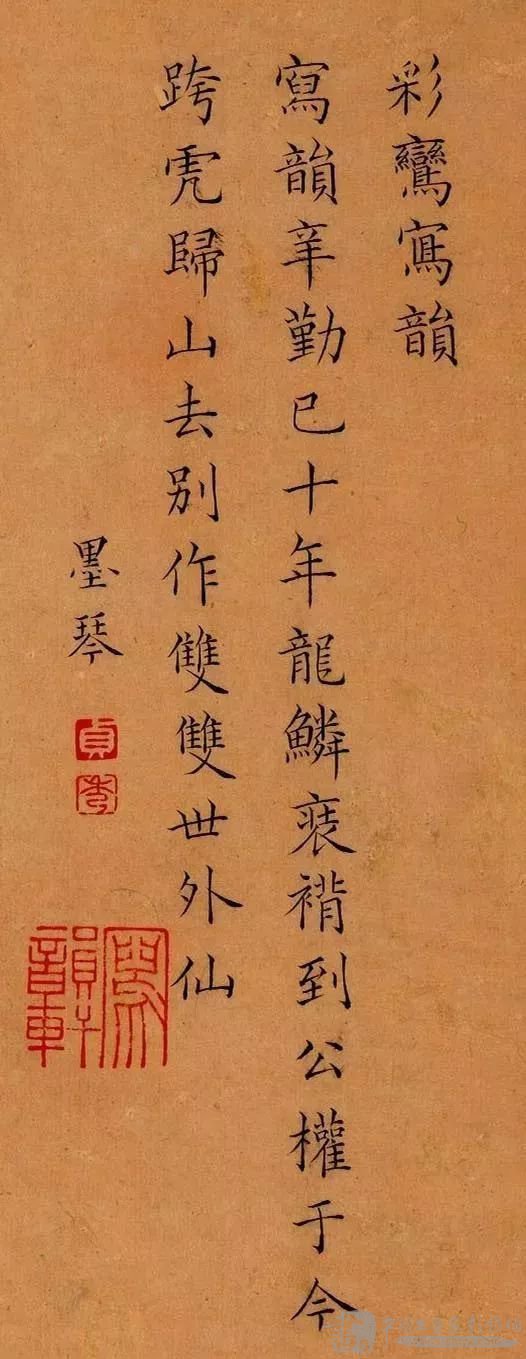 彩鸞寫韻
寫韻辛勤已十年龍鱗裘褙到公權于今
跨虎歸山去別作雙雙世外仙
墨琴
貞
秀
寫韻軒